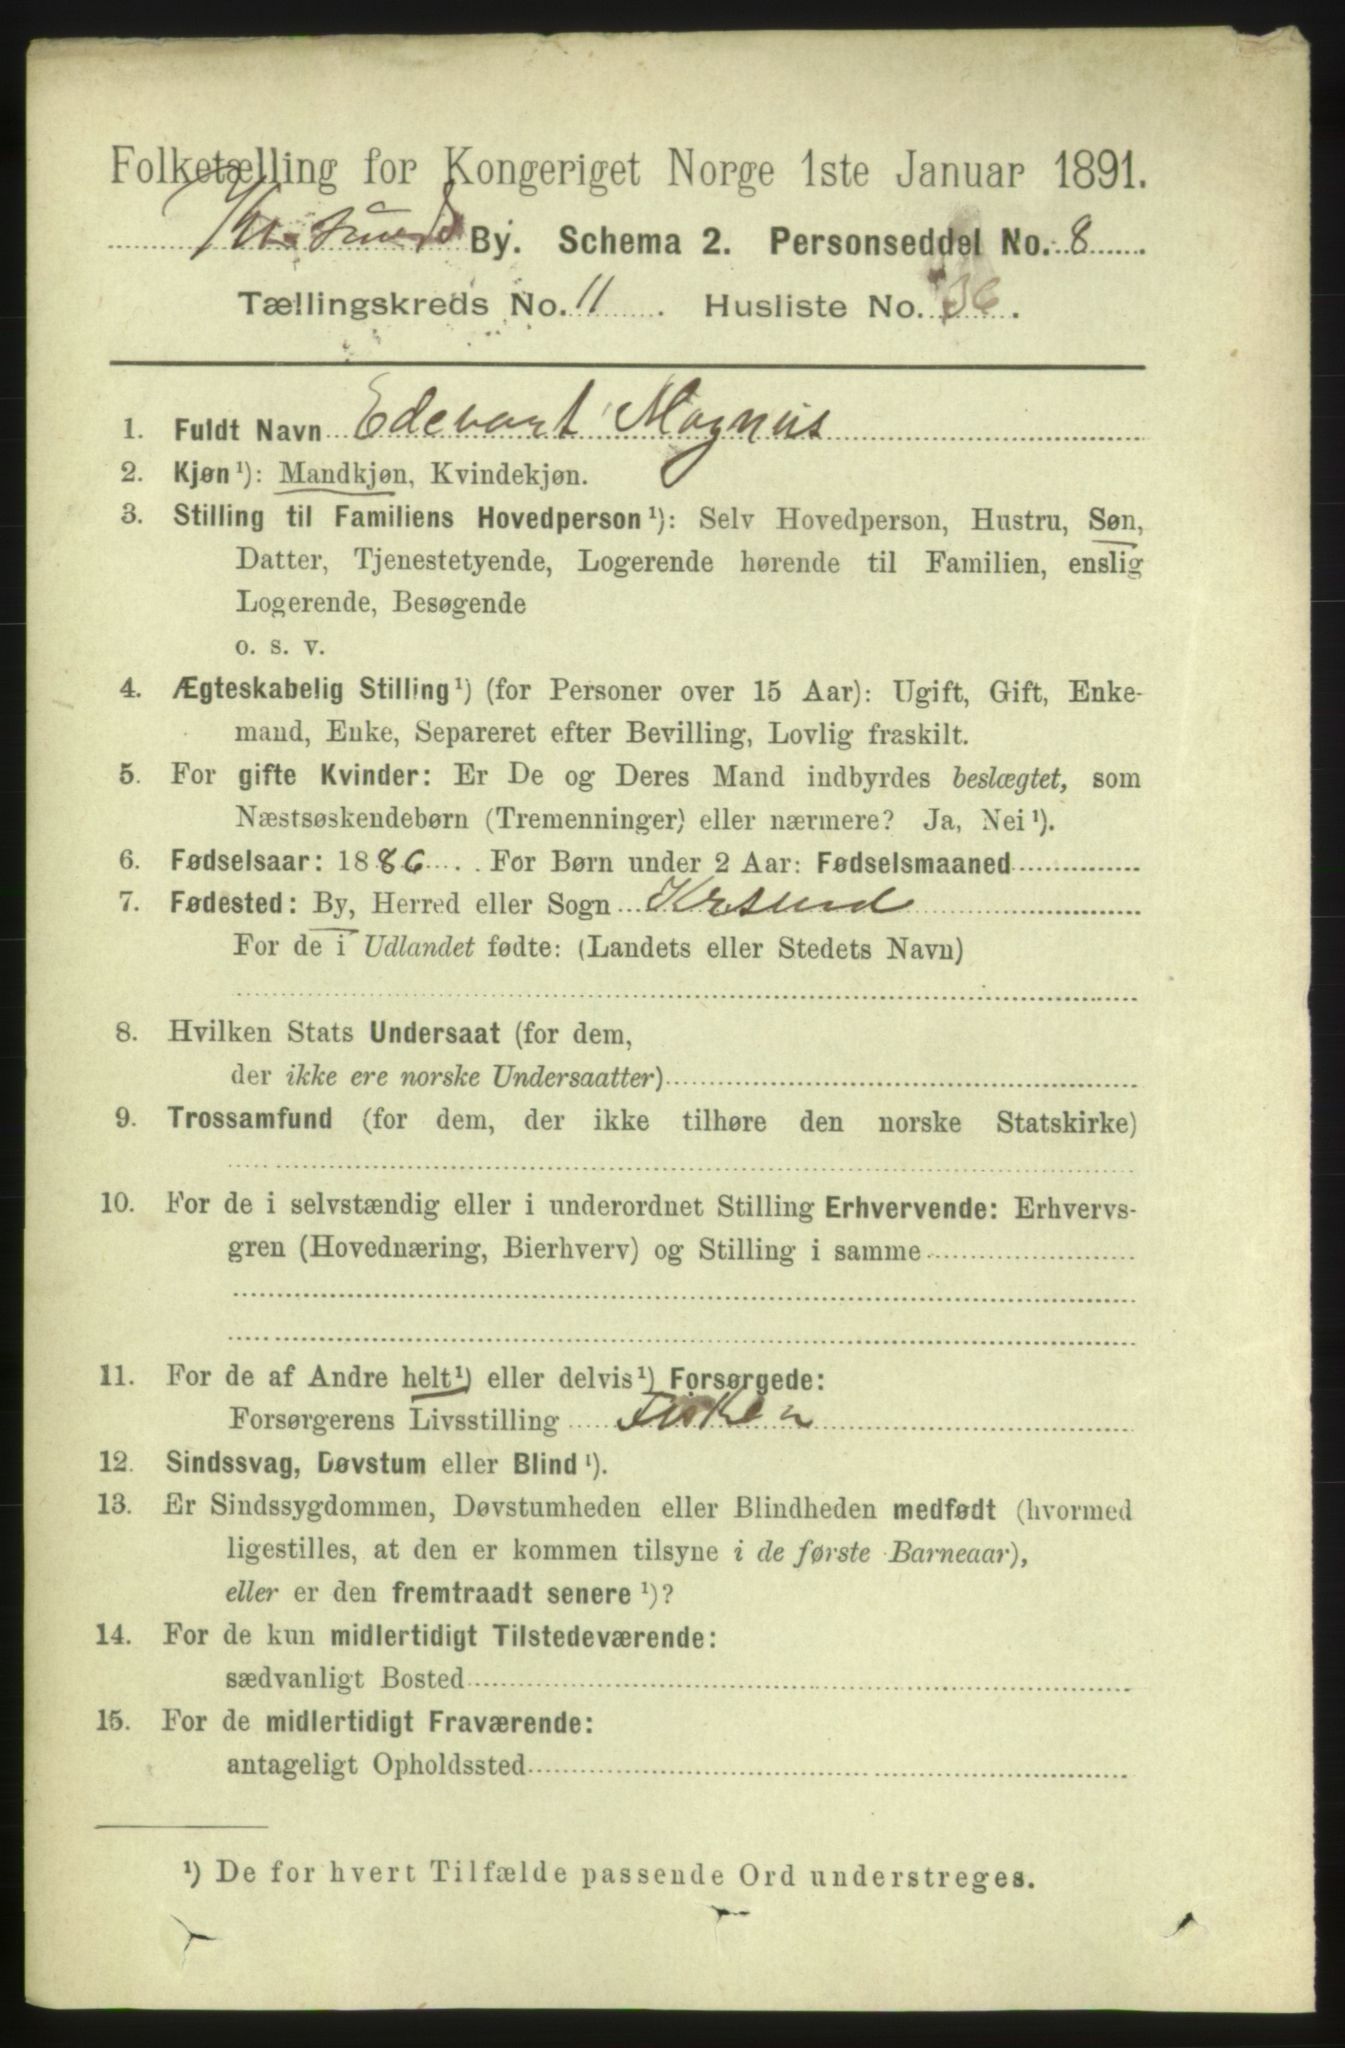 Folketælling for Kongeriget Norge 1ste Januar 1891.
Kr.sund By. Schema 2. Personseddel No. 8.
Tællingskreds No. 11. Husliste No. 36.
1. Fuldt Navn Edevart Magnus
2. Kjøn¹): Mandkjøn, Kvindekjøn.
3. Stilling til Familiens Hovedperson¹): Selv Hovedperson, Hustru, Søn,
Datter, Tjenestetyende, Logerende hørende til Familien, enslig
Logerende, Besøgende
o. s. v.
4. Ægteskabelig Stilling¹) (for Personer over 15 Aar): Ugift, Gift, Enke-
mand, Enke, Separeret efter Bevilling, Lovlig fraskilt.
5. For gifte Kvinder: Er De og Deres Mand indbyrdes beslægtet, som
Næstsøskendebørn (Tremenninger) eller nærmere? Ja, Nei¹).
6. Fødselsaar: 1886. For Børn under 2 Aar: Fødselsmaaned
7. Fødested: By, Herred eller Sogn Krsund
For de i Udlandet fødte: (Landets eller Stedets Navn)
8. Hvilken Stats Undersaat (for dem,
der ikke ere norske Undersaatter)
9. Trossamfund (for dem, der ikke tilhøre den norske Statskirke)
10. For de i selvstændig eller i underordnet Stilling Erhvervende: Erhvervs-
gren (Hovednæring, Bierhverv) og Stilling i samme
11. For de af Andre helt¹) eller delvis¹) Forsørgede:
Forsørgerens Livsstilling Fisker
12. Sindssvag, Døvstum eller Blind¹).
13. Er Sindssygdommen, Døvstumheden eller Blindheden medfødt (hvormed
ligestilles, at den er kommen tilsyne i de første Barneaar),
eller er den fremtraadt senere¹)?
14. For de kun midlertidigt Tilstedeværende:
sædvanligt Bosted
15. For de midlertidigt Fraværende:
antageligt Opholdssted
¹) De for hvert Tilfælde passende Ord understreges.